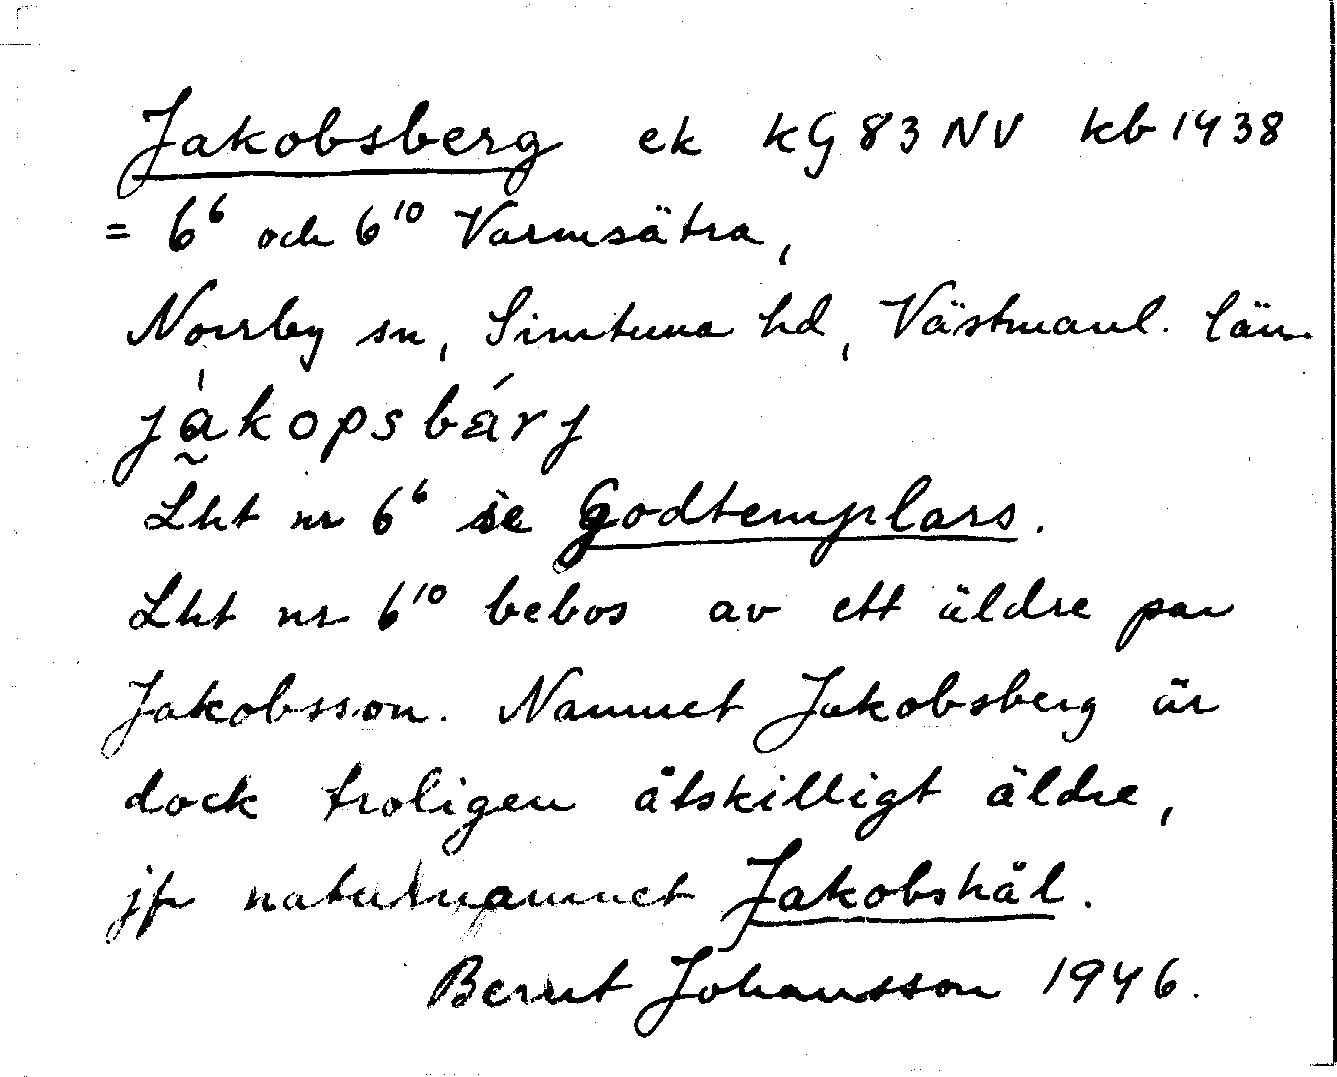 Jakobsberg ek kG 83 NV kb 1438
= 6⁶ och 6¹⁰ Varmsätra,
Norrby sn, Simtuna hd, Västmanl. län.
jàkopsbárj
Lht nr 6⁶ se Godtemplars.
Lht nr 6¹⁰ bebos av ett äldre par
Jakobsson. Namnet Jakobsberg är
dock troligen åtskilligt äldre,
jfr naturnamnet Jakobshäl.
Bernt Johansson 1946.